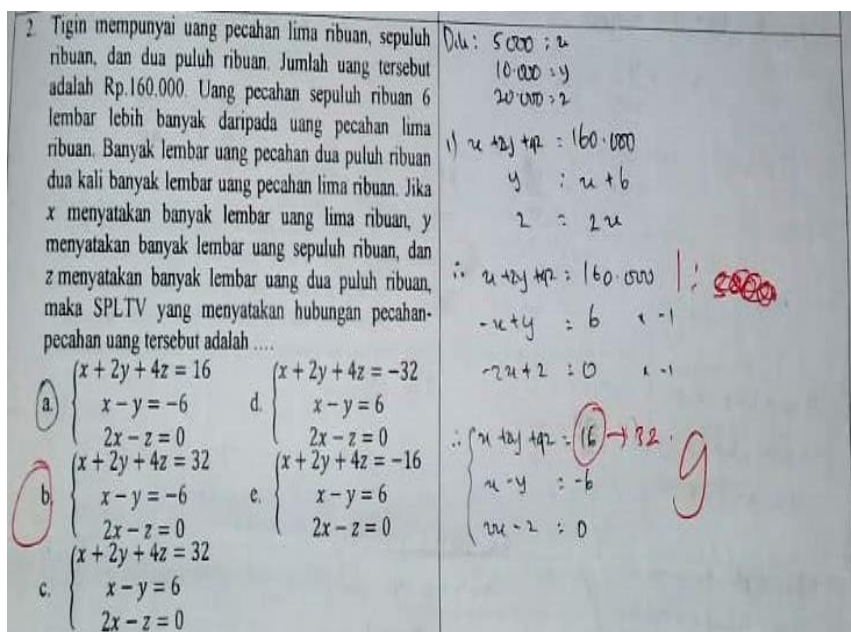 2. Tigin mempunyai uang pecahan lima ribuan, sepuluh
ribuan, dan dua puluh ribuan. Jumlah uang tersebut
adalah Rp.160.000. Uang pecahan sepuluh ribuan 6
lembar lebih banyak daripada uang pecahan lima
ribuan. Banyak lembar uang pecahan dua puluh ribuan
dua kali banyak lembar uang pecahan lima ribuan. Jika
x menyatakan banyak lembar uang lima ribuan, y
menyatakan banyak lembar uang sepuluh ribuan, dan
z menyatakan banyak lembar uang dua puluh ribuan,
maka SPLTV yang menyatakan hubungan pecahan-
pecahan uang tersebut adalah ....
a. x + 2y + 4z = 16
x – y = –6
2x – z = 0
b. x + 2y + 4z = 32
x – y = –6
2x – z = 0
c. x + 2y + 4z = 32
x – y = 6
2x – z = 0
d. x + 2y + 4z = –32
x – y = 6
2x – z = 0
e. x + 2y + 4z = –16
x – y = 6
2x – z = 0
5000 : x
10.000 : y
20.000 : z
1) x + 2y + 4z = 160.000
y : x + 6
z = 2x
∴ x + 2y + 4z = 160.000
-x + y = 6 x -1
-2x + z : 0 x -1
∴ x + 2y + 4z = 16 → 32
x - y : -6
2x - z : 0
9